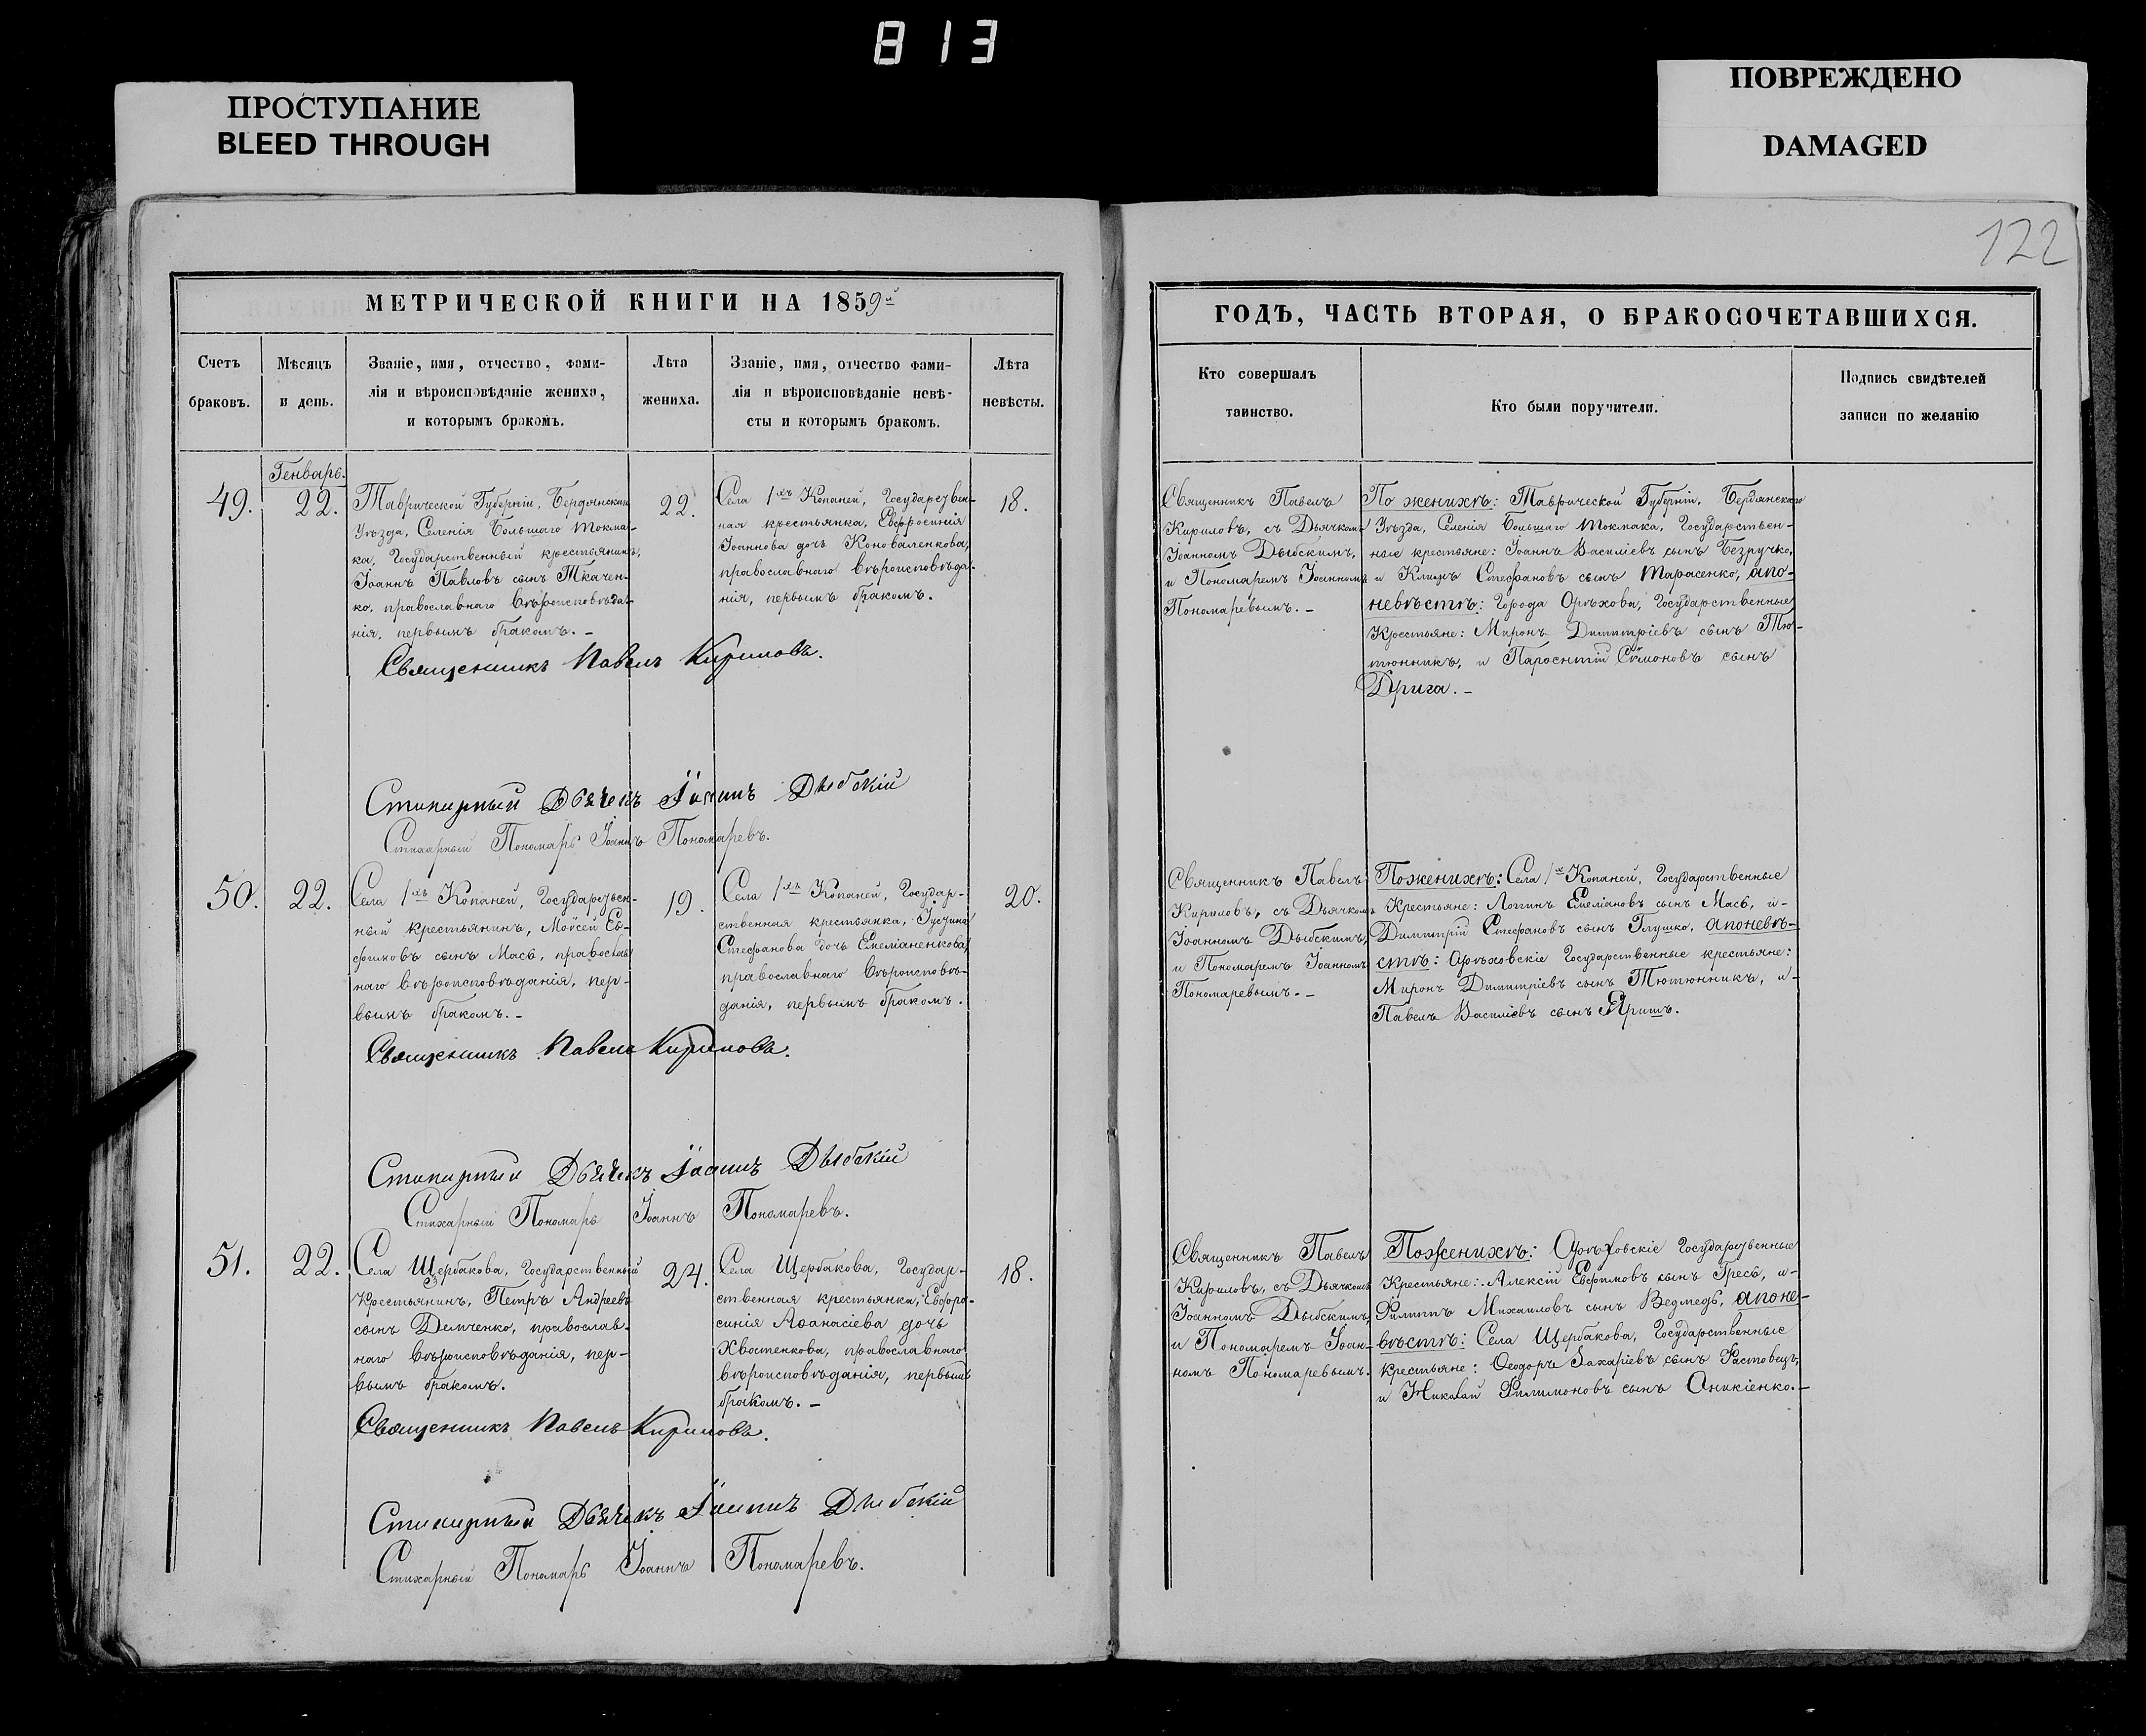 813
ПРОСТУПАНИЕ
BLEED THROUGH
ПОВРЕЖДЕНО
DAMAGED
122
МЕТРИЧЕСКОЙ КНИГИ НА 1859й
Счетъ
браковъ.
Мѣсяцъ
и день.
Званіе, имя, отчество, фами-
лія и вѣроисповѣданіе жениха,
и которымъ бракомъ.
Лѣта
жениха.
Званіе, имя, отчество фами-
лія и вѣроисповѣданіе невѣ-
сты и которымъ бракомъ.
Лѣта
невѣсты.
Генварь.
49.
22.
Таврической Губерніи, Бердянскаго
Уѣзда, Селенія Большаго Токма-
ка, Государственный крестьянинъ,
Іоаннъ Павловъ сынъ Ткачен-
ко, православнаго вѣроисповѣда-
нія, первымъ бракомъ. –
22.
Села 1хъ Копаней, Государствен-
ная крестьянка, Евфросинія
Іоаннова дочь Коноваленкова,
православнаго вѣроисповѣда-
нія, первымъ бракомъ.
18.
Священникъ Павелъ Кириловъ.
Стихарный Дьячекъ Іоаннъ Дыбскій
Стихарный Пономарь Іоаннъ Пономаревъ.
50.
22.
Села 1хъ Копаней, Государствен-
ный крестьянинъ, Моѵсей Ев-
фимовъ сынъ Мась, православ-
наго вѣроисповѣданія, пер-
вымъ бракомъ. –
19.
Села 1хъ Копаней, Государ-
ственная крестьянка, Іустина
Стефанова дочь Емеліаненкова,
православнаго вѣроисповѣ-
данія, первымъ бракомъ.
20.
Священникъ Павелъ Кириловъ.
Стихарный Дьячекъ Іоаннъ Дыбскій
Стихарный Пономарь Іоаннъ Пономаревъ.
51.
22.
Села Щербакова, Государственный
Крестьянинъ, Петръ Андреевъ
сынъ Демченко, православ-
наго вѣроисповѣданія, пер-
вымъ бракомъ.
24.
Села Щербакова, Государ-
ственная крестьянка, Евфро-
синія Аѳанасіева дочь
Хвостенкова, православнаго
вѣроисповѣданія, первымъ
бракомъ. –
18.
Священникъ Павелъ Кириловъ.
Стихарный Дьячекъ Іоаннъ Дыбскій
Стихарный Пономарь Іоаннъ Пономаревъ.
ГОДѢ, ЧАСТЬ ВТОРАЯ, О БРАКОСОЧЕТАВШИХСЯ.
Кто совершалъ
таинство.
Кто были поручители.
Подпись свидѣтелей
записи по желанію
Священникъ Павелъ
Кириловъ, съ Дьячкомъ
Іоанномъ Дыбскимъ,
и Пономаремъ Іоанномъ
Пономаревымъ. –
По женихѣ: Таврической Губерніи, Бердянскаго
Уѣзда, Селенія Большаго Токмака, Государствен-
ные крестьяне: Іоаннъ Василіевъ сынъ Безручко,
и Климъ Стефановъ сынъ Тарасенко, а по-
невѣстѣ: Города Орѣхова, Государственные
Крестьяне: Миронъ Димитріевъ сынъ Тю-
тюнникъ, и Сѵмоновъ сынъ
Дрига. –
Священникъ Павелъ
Кириловъ, съ Дьячкомъ
Іоанномъ Дыбскимъ,
и Пономаремъ Іоанномъ
Пономаревымъ. –
По женихѣ: Села 1х Копаней, Государственные
Крестьяне: Логинъ Емеліановъ сынъ Мась, и-
Димитрій Стефановъ сынъ Глушко, а по невѣ-
стѣ: Орѣховскіе Государственные крестьяне:
Миронъ Димитріевъ сынъ Тютюнникъ, и-
Павелъ Василіевъ сынъ Яришъ.
Священникъ Павелъ
Кириловъ, съ Дьячкомъ
Іоанномъ Дыбскимъ,
и Пономаремъ Іоан-
номъ Пономаревымъ.
По женихѣ: Орѣховскіе Государственные
Крестьяне: Алексій Евфимовъ сынъ Гресь, и-
Филиппъ Михаиловъ сынъ Ведмедь, а по не-
вѣстѣ: Села Щербакова, Государственные
крестьяне: Ѳеодоръ Захаріевъ сынъ Растовецъ,
и Николай Филимоновъ сынъ Оникіенко. –